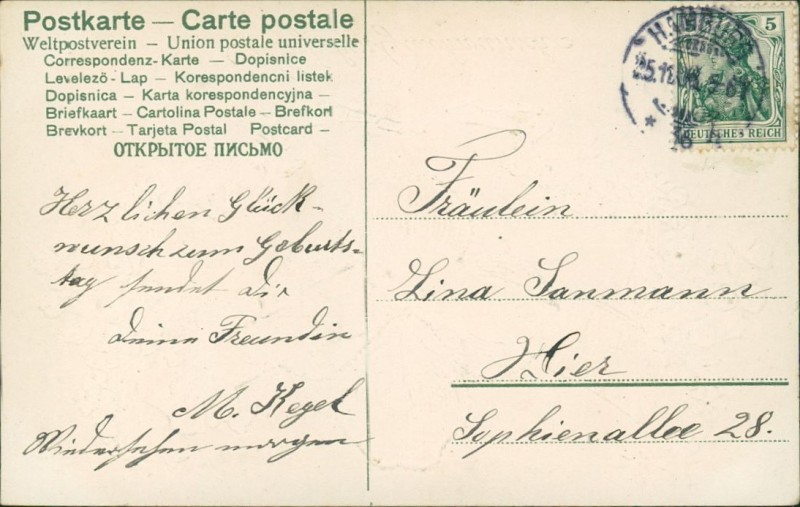 Postkarte — Carte postale
Weltpostverein — Union postale universelle
Correspondenz-Karte — Dopisnice
Levelező-Lap — Korespondencni listek
Dopisnica — Karta korespondencyjna —
Briefkaart — Cartolina Postale — Brefkort
Brevkort — Tarjeta Postal Postcard —
ОТКРЫТОЕ ПИСЬМО
Herzlichen Glück-
wunsch zum Geburts-
tag sendet Dir
Deine Freundin
M. Kegel
Wiedersehen morgen
5
HAMBURG
DEUTSCHES REICH
Fräulein
Lina Sanmann
Hier
Sophienallee 28.